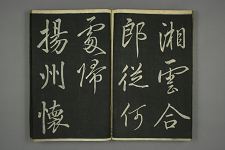 湘雲合
郎從何
處歸
揚州懷